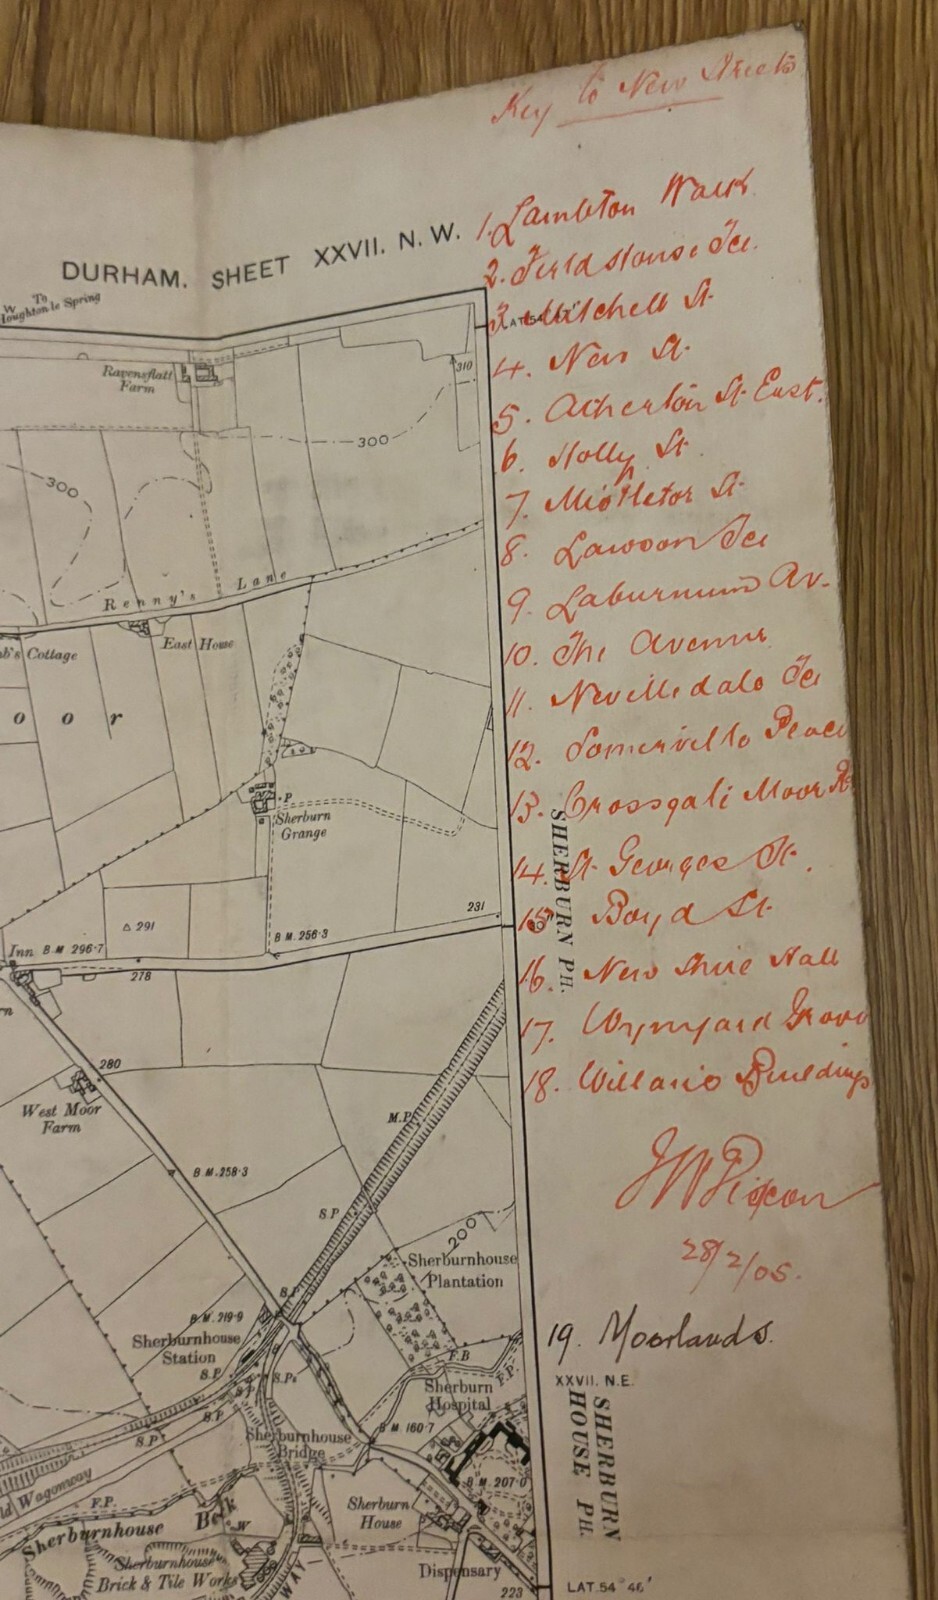 Key to New Streets
DURHAM. SHEET XXVII. N. W.
1. Lambton Walk
2. Fieldhouse Tce.
3. Mitchell St.
4. New St.
5. Atherton St. East.
6. Holly St.
7. St.
8. Lawson Tce
9. Laburnum Av.
10. The Avenue
11. Nevilledale Tce
12. Somerville Place
13. Crossgate Moor
14. St. Georges St.
15. Boyd St.
16. New Shire Hall
17. Wynyard Grove
18. Buildings
28/2/05.
19. Moorlands.
W To
Houghton le Spring
Ravensflatt
Farm
310
300
300
Renny's Lane
b's Cottage
East House
o o r
P
Sherburn
Grange
SHERBURN PH.
291
231
B M. 256·3
Inn B M 296·7
278
rn
280
West Moor
Farm
M.P
B M. 258·3
S.P
200
Sherburnhouse
Plantation
S.P
B M. 219·9
Sherburnhouse
Station
S.P.
S.Ps
S.P
S.P
S.P
F.B
F.P.
XXVII. N.E.
Sherburn
Hospital
SHERBURN
HOUSE PH.
B M. 160·7
Sherburnhouse
Bridge
B M. 207·0
ld Wagonway
F.P.
Sherburnhouse Beck
W
Sherburn
House
Sherburnhouse
Brick & Tile Works
WAY
Dispensary
223
LAT. 54° 46'